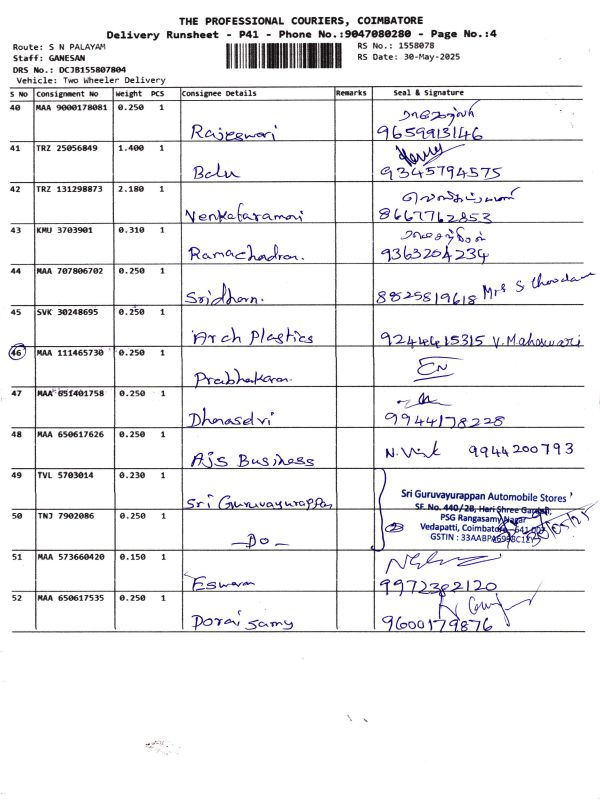 THE PROFESSIONAL COURIERS, COIMBATORE
Delivery Runsheet - P41 - Phone No.:9047080280 - Page No.:4
Route: S N PALAYAM
RS No.: 1558078
Staff: GANESAN
RS Date: 30-May-2025
DRS No.: DCJB155807804
Vehicle: Two Wheeler Delivery
S No Consignment No Weight PCS Consignee Details Remarks Seal & Signature
40 MAA 9000178081 0.250 1
Rajeswari 9659913146
41 TRZ 25056849 1.400 1
Balu 9345794575
42 TRZ 131298873 2.180 1
Venkataramani 8667762853
43 KMU 3703901 0.310 1
Ramachadran. 9363204234
44 MAA 707806702 0.250 1
Sridharn. 8825819618 Mrs S
45 SVK 30248695 0.250 1
Arch Plastics 9244615315 V. Maheswari
46 MAA 111465730 0.250 1
Prabhakaran.
47 MAA 651401758 0.250 1
Dhanasdvi 9944178228
48 MAA 650617626 0.250 1
AJS Business 9944200793
49 TVL 5703014 0.230 1
Sri Guruvayurappan
Sri Guruvayurappan Automobile Stores
50 TNJ 7902086 0.250 1
SF. No. 440/2B, Hari Shree Garden,
PSG Rangasamy Nagar
-Do- 2 Vedapatti, Coimbatore
GSTIN :
51 MAA 573660420 0.150 1
Eswaran 9972382120
52 MAA 650617535 0.250 1
Doraisamy 9600179876